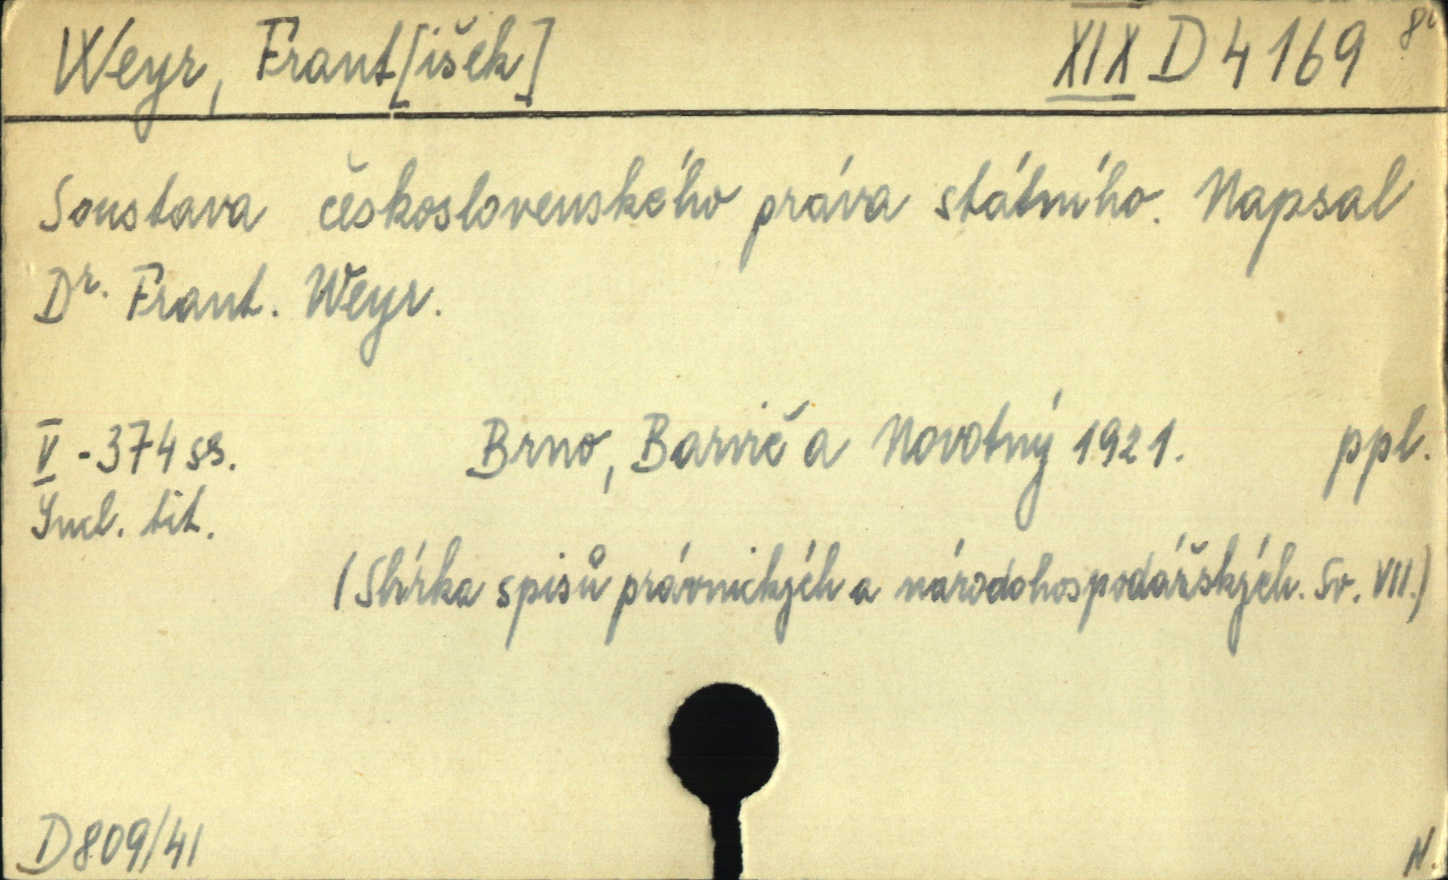 Weyr, Frant[išek] XIX D 4169 8°
Soustava československého práva státního. Napsal
Dr. Frant. Weyr.
V - 374 ss. Brno, Barvič a Novotný 1921. ppl.
Incl. tit.
(Sbírka spisů právnických a národohospodářských. Sv. VII.)
D 809/41 N.